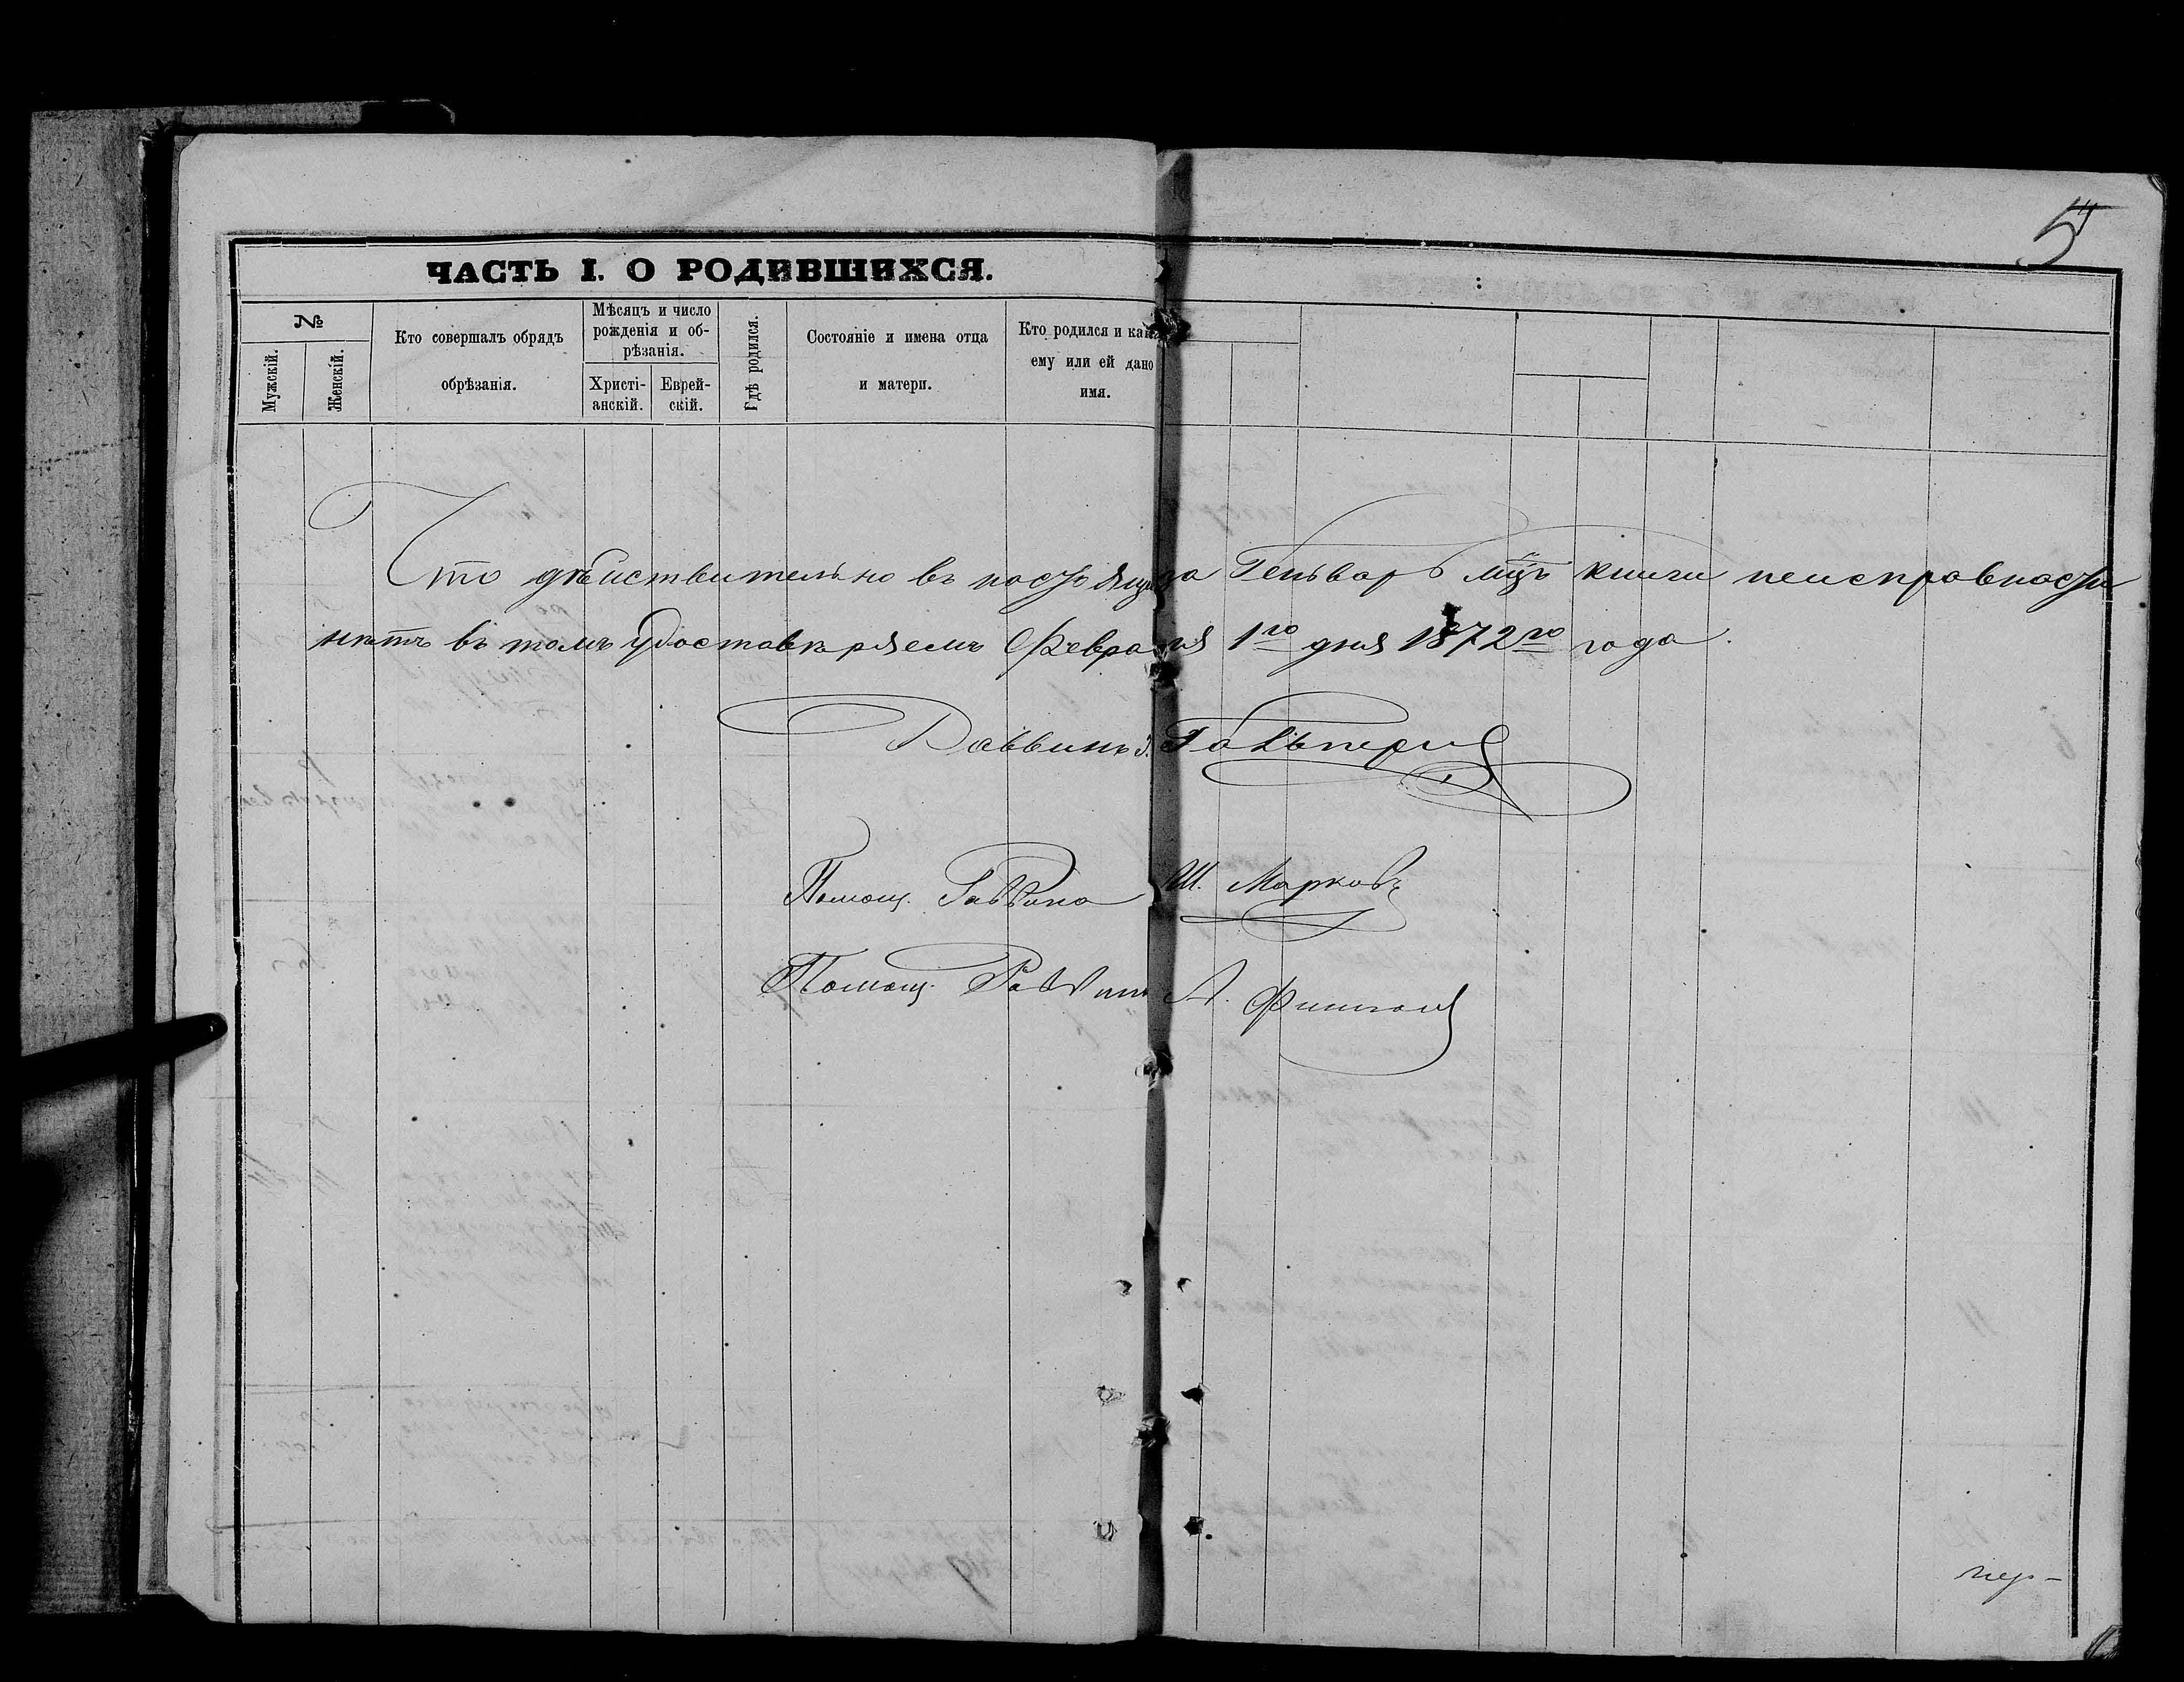 5
ЧАСТЬ I. О РОДИВШИХСЯ.
№
Мужскій.
Женскій.
Кто совершалъ обрядъ
обрѣзанія.
Мѣсяцъ и число
рожденія и об-
рѣзанія.
Христі-
анскій.
Еврей-
скій.
Гдѣ родился.
Состояніе и имена отца
и матери.
Кто родился и как
ему или ей дано
имя.
Что дѣйствительно въ за Генварь мцъ книги неисправности
нѣтъ въ томъ удостовѣряемъ Февраля 1го дня 1872го года.
Раввинъ Гальперн
Помощ. Раввина Ш. Марковъ
Помощ. Раввина А.